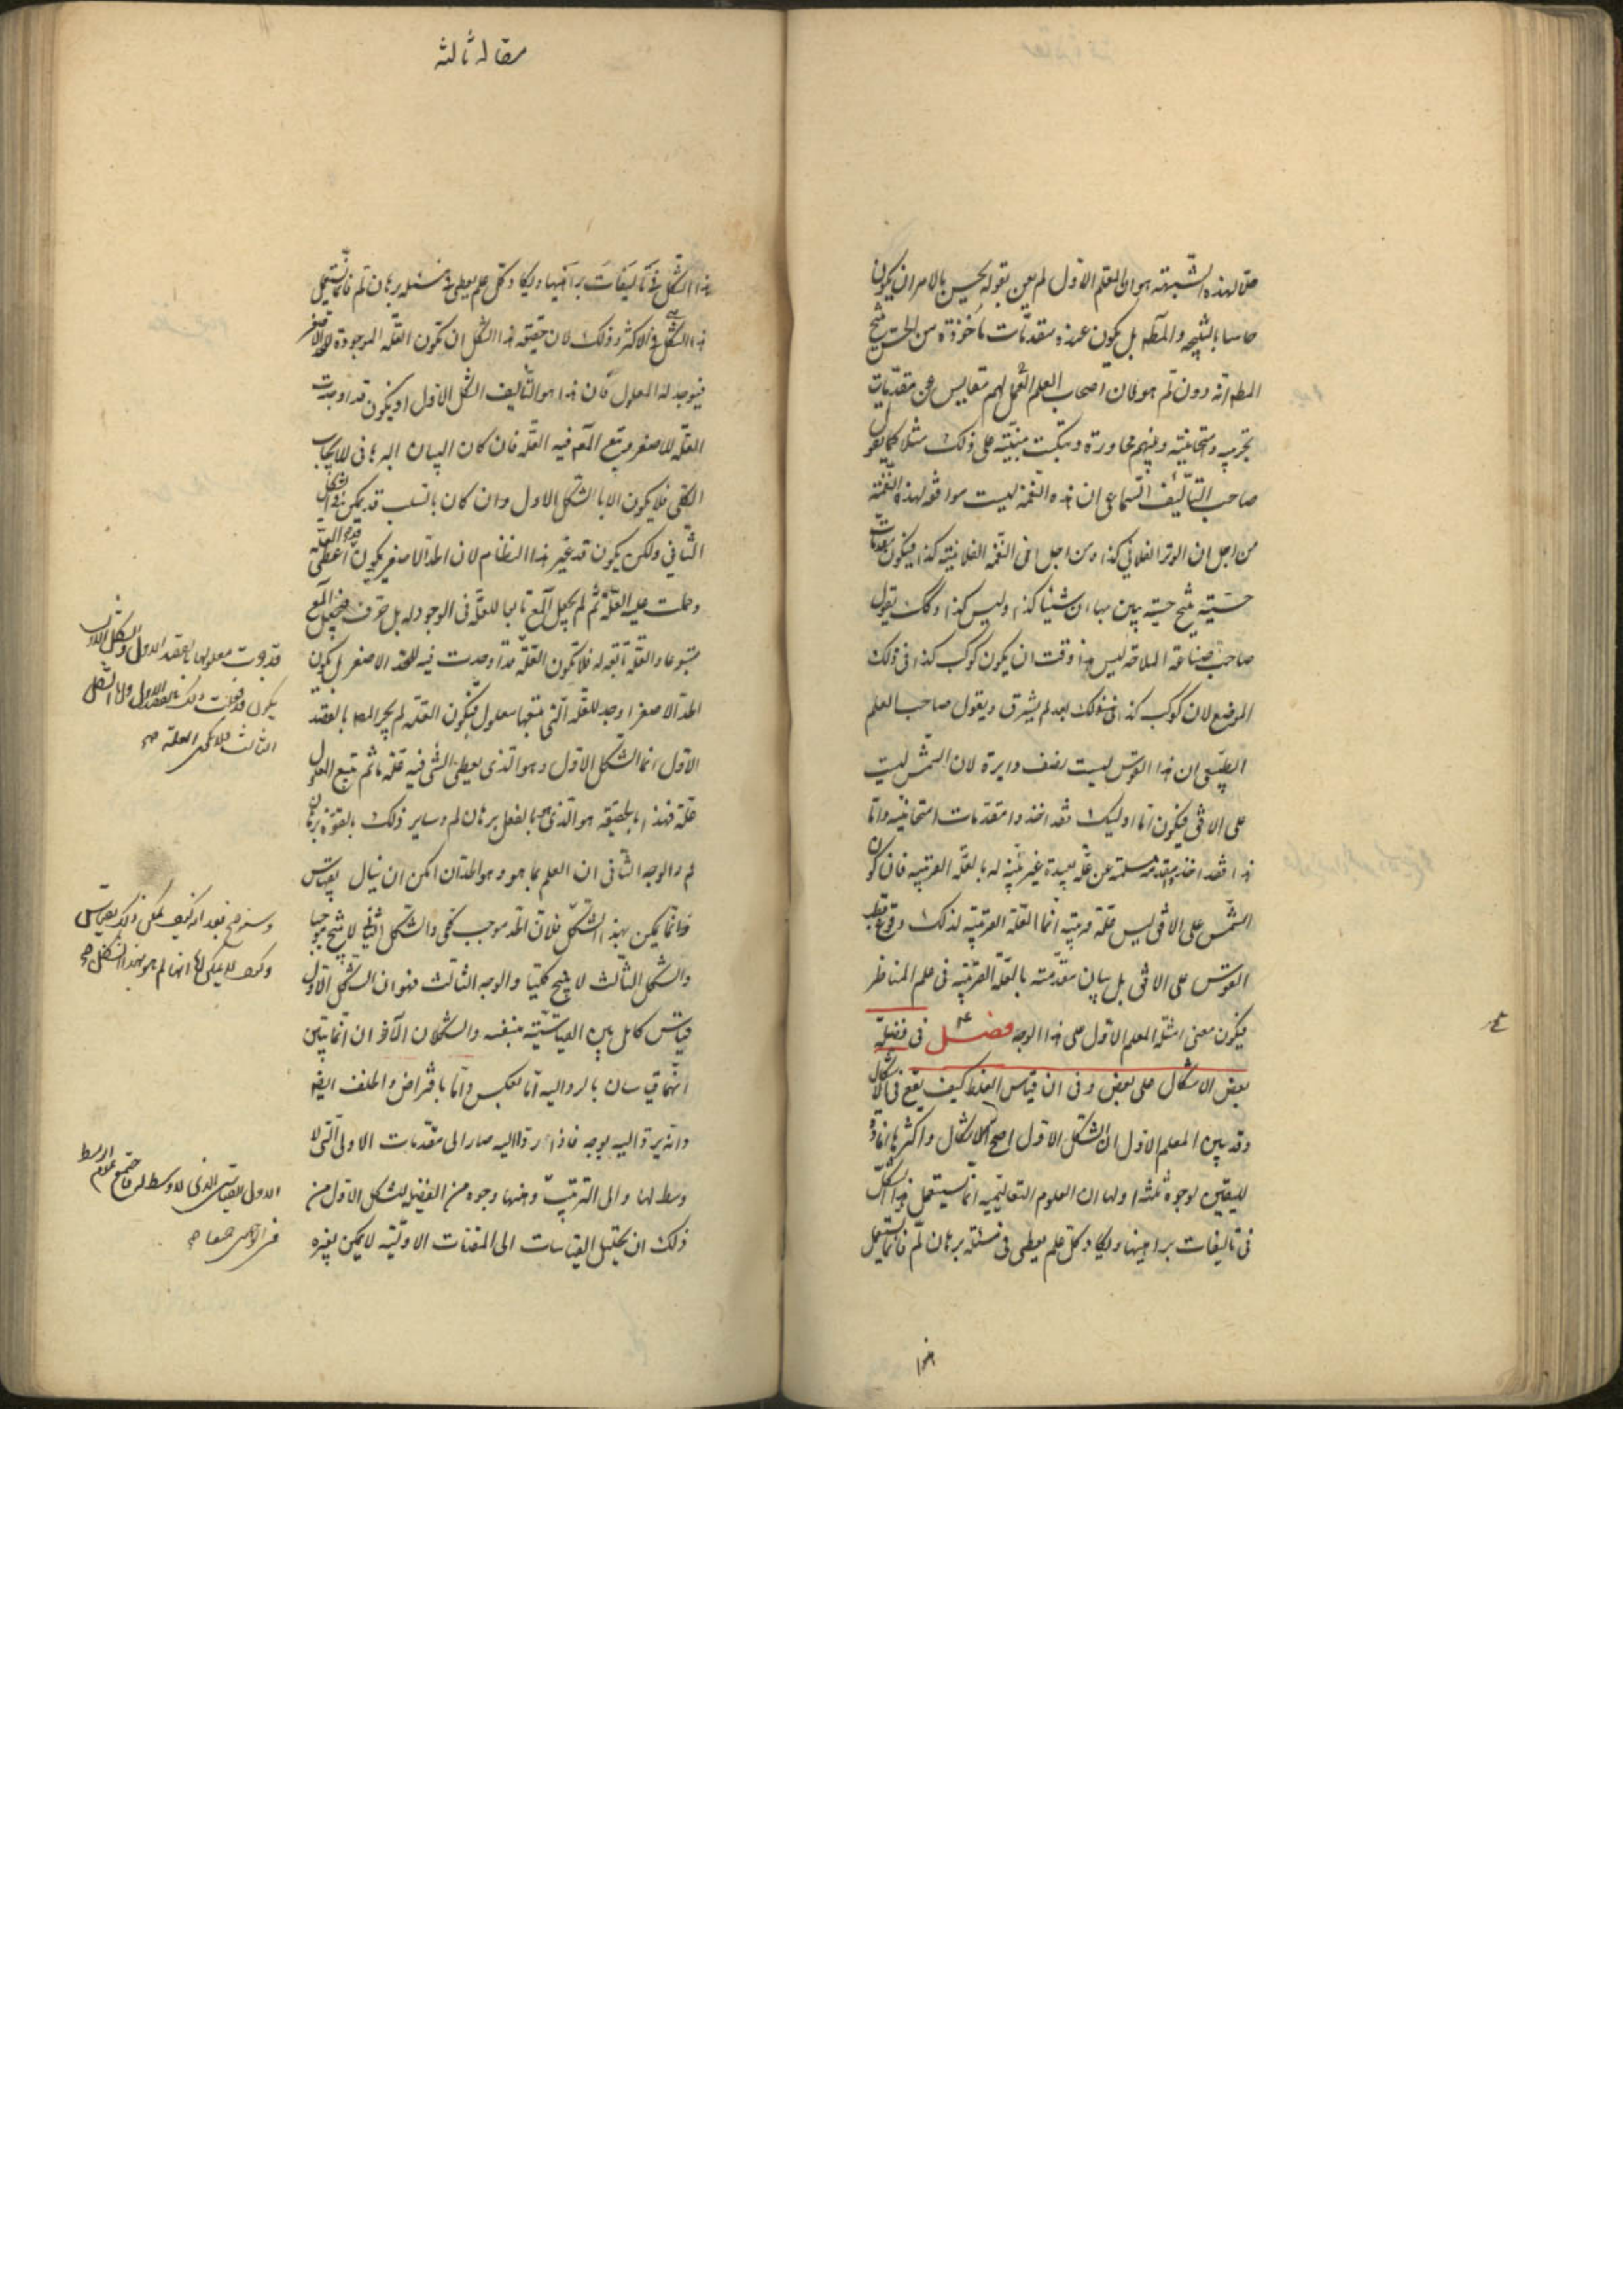 حلا لهذه الشبهة هو ان المعلم الاول لم يعن بقوله يحس بالامر ان يكون
حاسا بالنتيجة والمط بل يكون عنده مقدمات مأخوذة من الحس ينتج
المط انه دون لم هو فان اصحاب العلم العملى لهم مقاييس عن مقدمات
تجربيه وامتحانية وبينهم محاورة وتبكيت مبنية على ذلك مثلا كما يقول
صاحب التأليف السماعى ان هذه النغمة ليست موافقه لهذه النغمة
من اجل ان الوتر الفلانى كذا ومن اجل ان النغمه الفلانية كذا فيكون مقدمات
حسية ينتج حسية يبين بها ان شيئا كذا وليس كذا وكك يقول
صاحب صناعة الملاحة ليس هذا وقت ان يكون كوكب كذا فى ذلك
الموضع لان كوكب كذا فى ذلك بعد لم يشرق ويقول صاحب العلم
الطبيعى ان هذا القوس ليست نصف دايرة لان الشمس ليست
على الافق فيكون اما اوليك فقد اخذوا مقدمات امتحانيه واما
هذا فقد اخذ مقدمة مسلمة عن علة بعيدة غير مبينة له بالعلة القريبه فان كون
الشمس على الافق ليس علة قريبة انما العلة القريبه لذلك وقوع قطب
القوس على الافق بل بيان مقدمته بالعلة القريبه فى علم المناظر
فيكون معنى امثلة المعلم الاول على هذا الوجه فصل فى فضيلة
بعض الاشكال على بعض وفى ان قياس الغلط كيف يقع فى الاشكال
وقد بين المعلم الاول ان الشكل الاول اصح الاشكال واكثرها افادة
لليقين لوجوه ثلثة اولها ان العلوم التعاليميه انما يستعمل هذا الشكل
فى تاليفات براهينها ويكاد كل علم يعطى فى مسئلة برهان لم فانما يستعمل
هذا
مقاله ثالثه
هذا الشكل فى تاليفات براهينها ويكاد كل علم يعطى فى مسئله برهان لم فانما يستعمل
هذا الشكل فى الاكثر وذلك لان حقيقة هذا الشكل ان تكون العله الموجودة للاصغر
فيوجد له المعلول فان هذا هو التأليف الشكل الاول او يكون قد اوجدت
العلة للاصغر ويتبع فيه العلة فان كان البيان البرهانى للايجاب
الكلى فلا يكون الا بالشكل الاول وان كان بالسلب قد يمكن فى الشكل
الثانى ولكن يكون قد غير هذا النظام لان الحد الاصغر يكون اعطى قوة العلة
وحملت عليه العلة ثم لم يجعل تابعا للعلة فى الوجود له بل حرف فجعل
متبوعا والعلة تابعه له فلا تكون العلة قد اوجدت فيه للحد الاصغر بل يكون
الحد الاصغر اوجد للعلة التى يتبعها معلول فيكون العلة لم يجر بالعقد
الاول انما الشكل الاول وهو الذى يعطى الشى فيه علة ما ثم تتبع المعلول
علة فهذا بالحقيقة هو الذى بالفعل برهان لم وساير ذلك بالقوة برهان
لم والوجه الثانى ان العلم بما هو وهو الحد ان امكن ان ينال بقياس
فانما يمكن بهذا الشكل فلان الحد موجب كلى والشكل الثانى لا ينتج موجبا
والشكل الثالث لا ينتج كليا والوجه الثالث فهو ان الشكل الاول
قياس كامل بين القياسيته بنفسه والشكلان الآخران انما يتبين
انهما قياسان بالرد اليه اما بعكس واما بافتراض والخلف ايضا
وانه يرد اليه بوجه فاذا رد اليه صار الى مقدمات الاولى التى لا
وسط لها والى الترتيب ومنها وجوه من الفضيله للشكل الاول من
ذلك ان تحليل القياسات الى المقدمات الاولية لا يمكن بغيره
الثالث فلا يمكن العلة
وسنوضح بعد انه كيف يمكن ذلك بقياس
وكيف لا يمكن